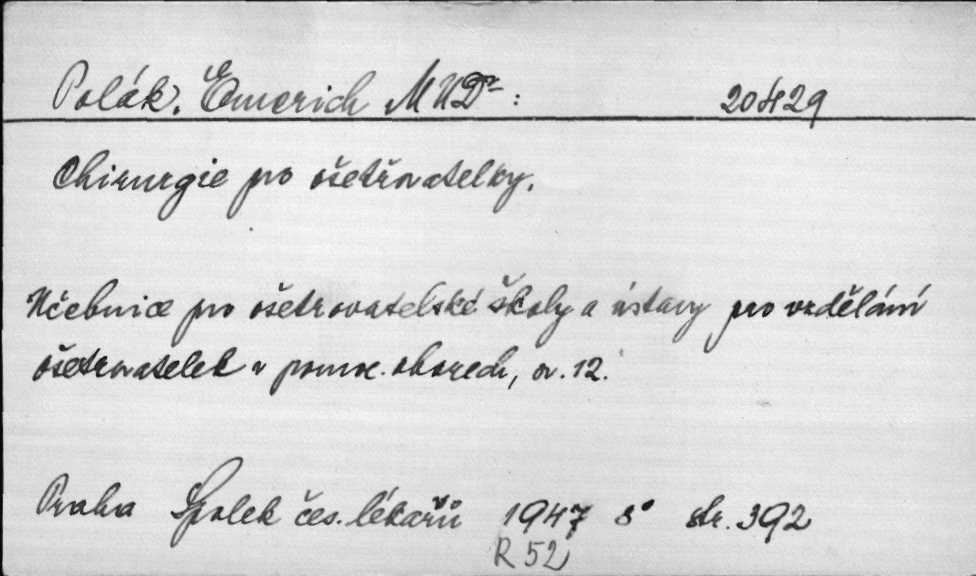 Polák, Emerich MUDr: 20429
Chirurgie pro ošetřovatelky.
Učebnice pro ošetrovatelské školy a ústavy pro vzdělání
ošetrovatelek v pomoc. oborech, sv. 12.
Praha Spolek čes. lékařů 1947 8° str. 392
R 52